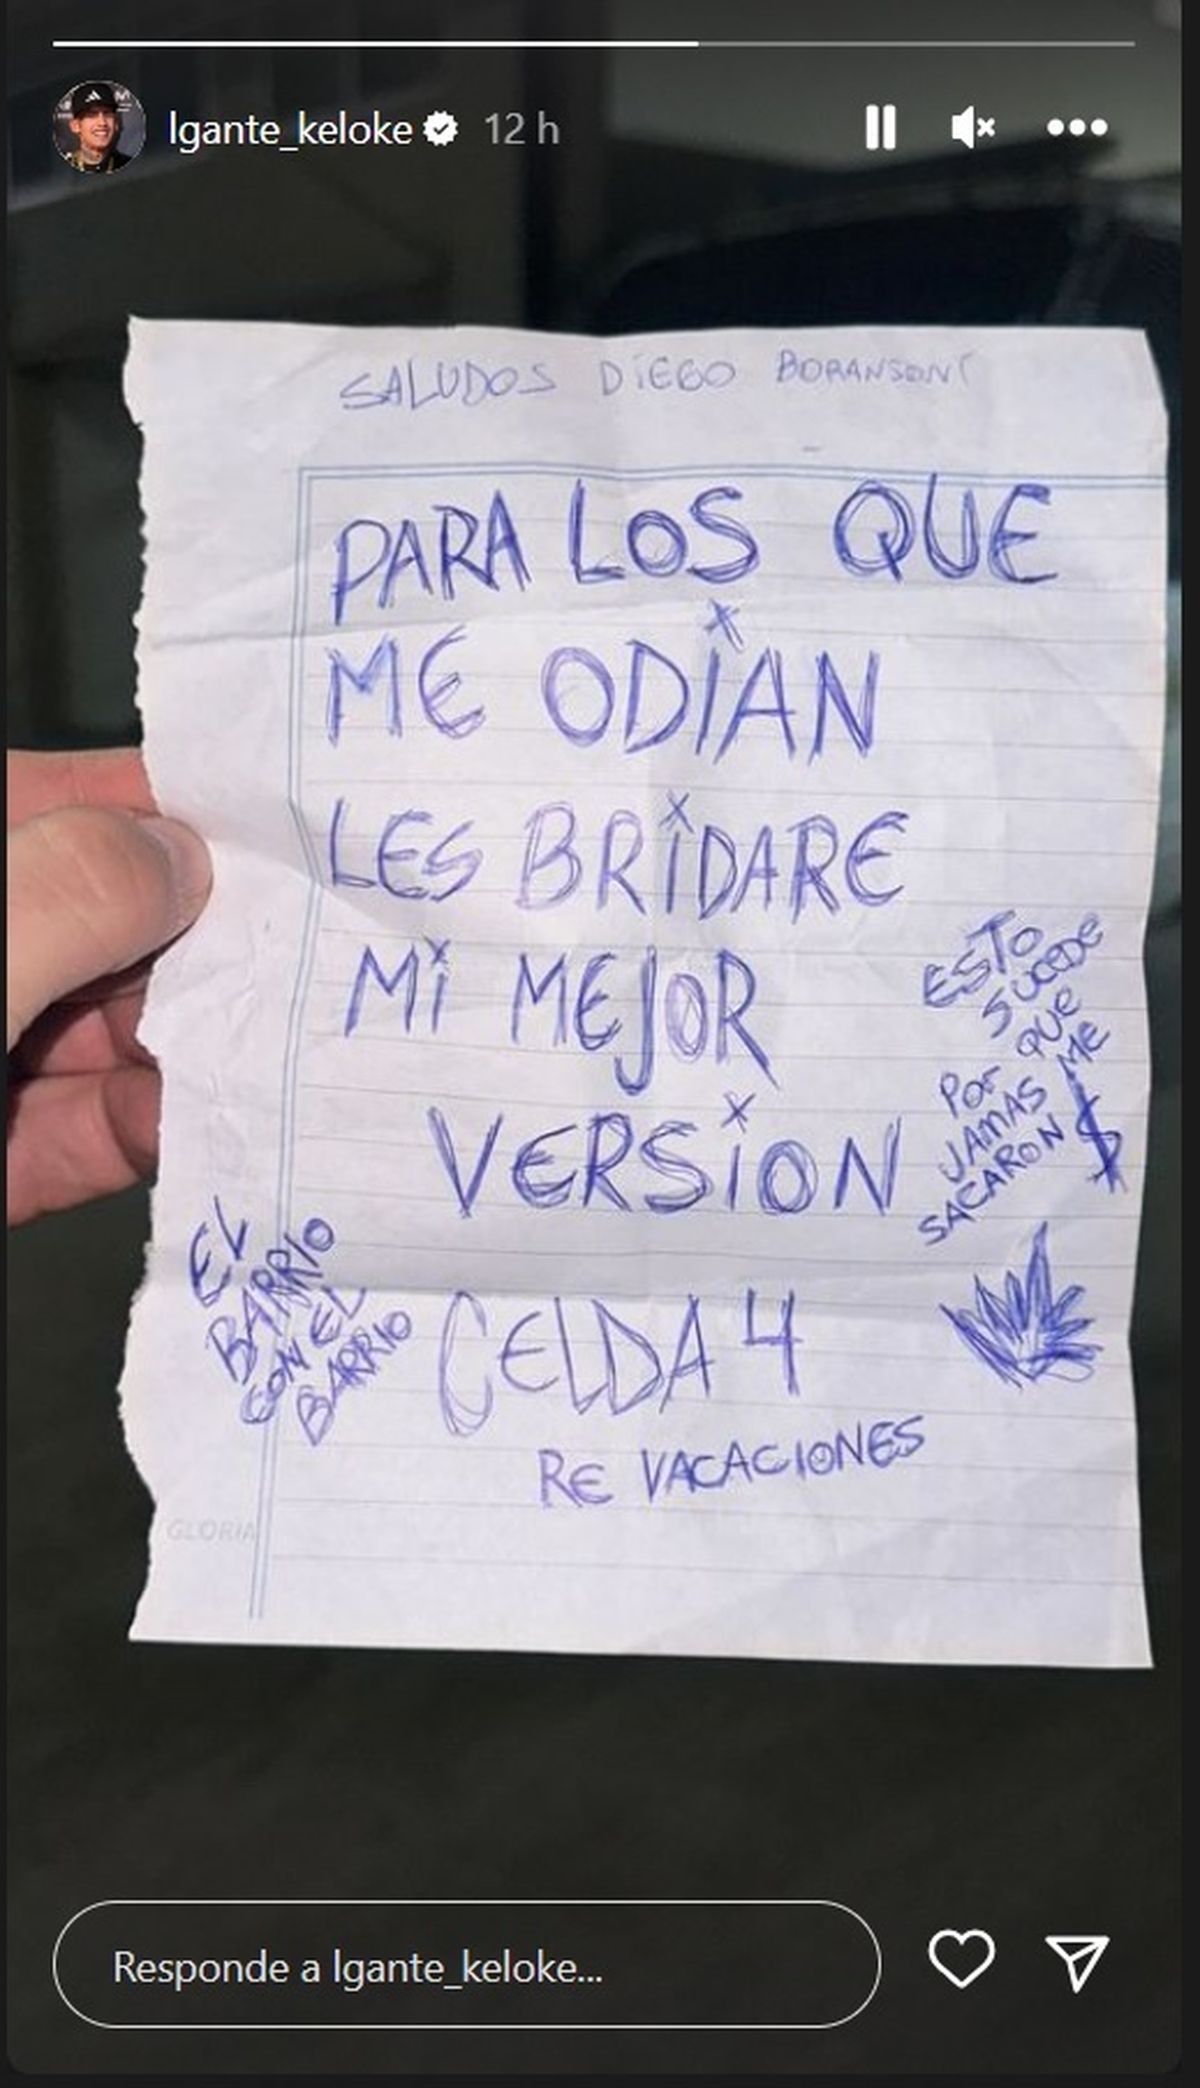 lgante_keloke 12 h
SALUDOS DiEGO BORANSONi
PARA LOS QUE
ME ODiAN
LES BRiDARE
Mi MEJOR
VERSiON
ESTO
SUCEDE
POR QUE
JAMAS ME
SACARON $
EL
BARRIO
CON EL
BARRIO
CELDA 4
RE VACACIONES
GLORIA
Responde a lgante_keloke...